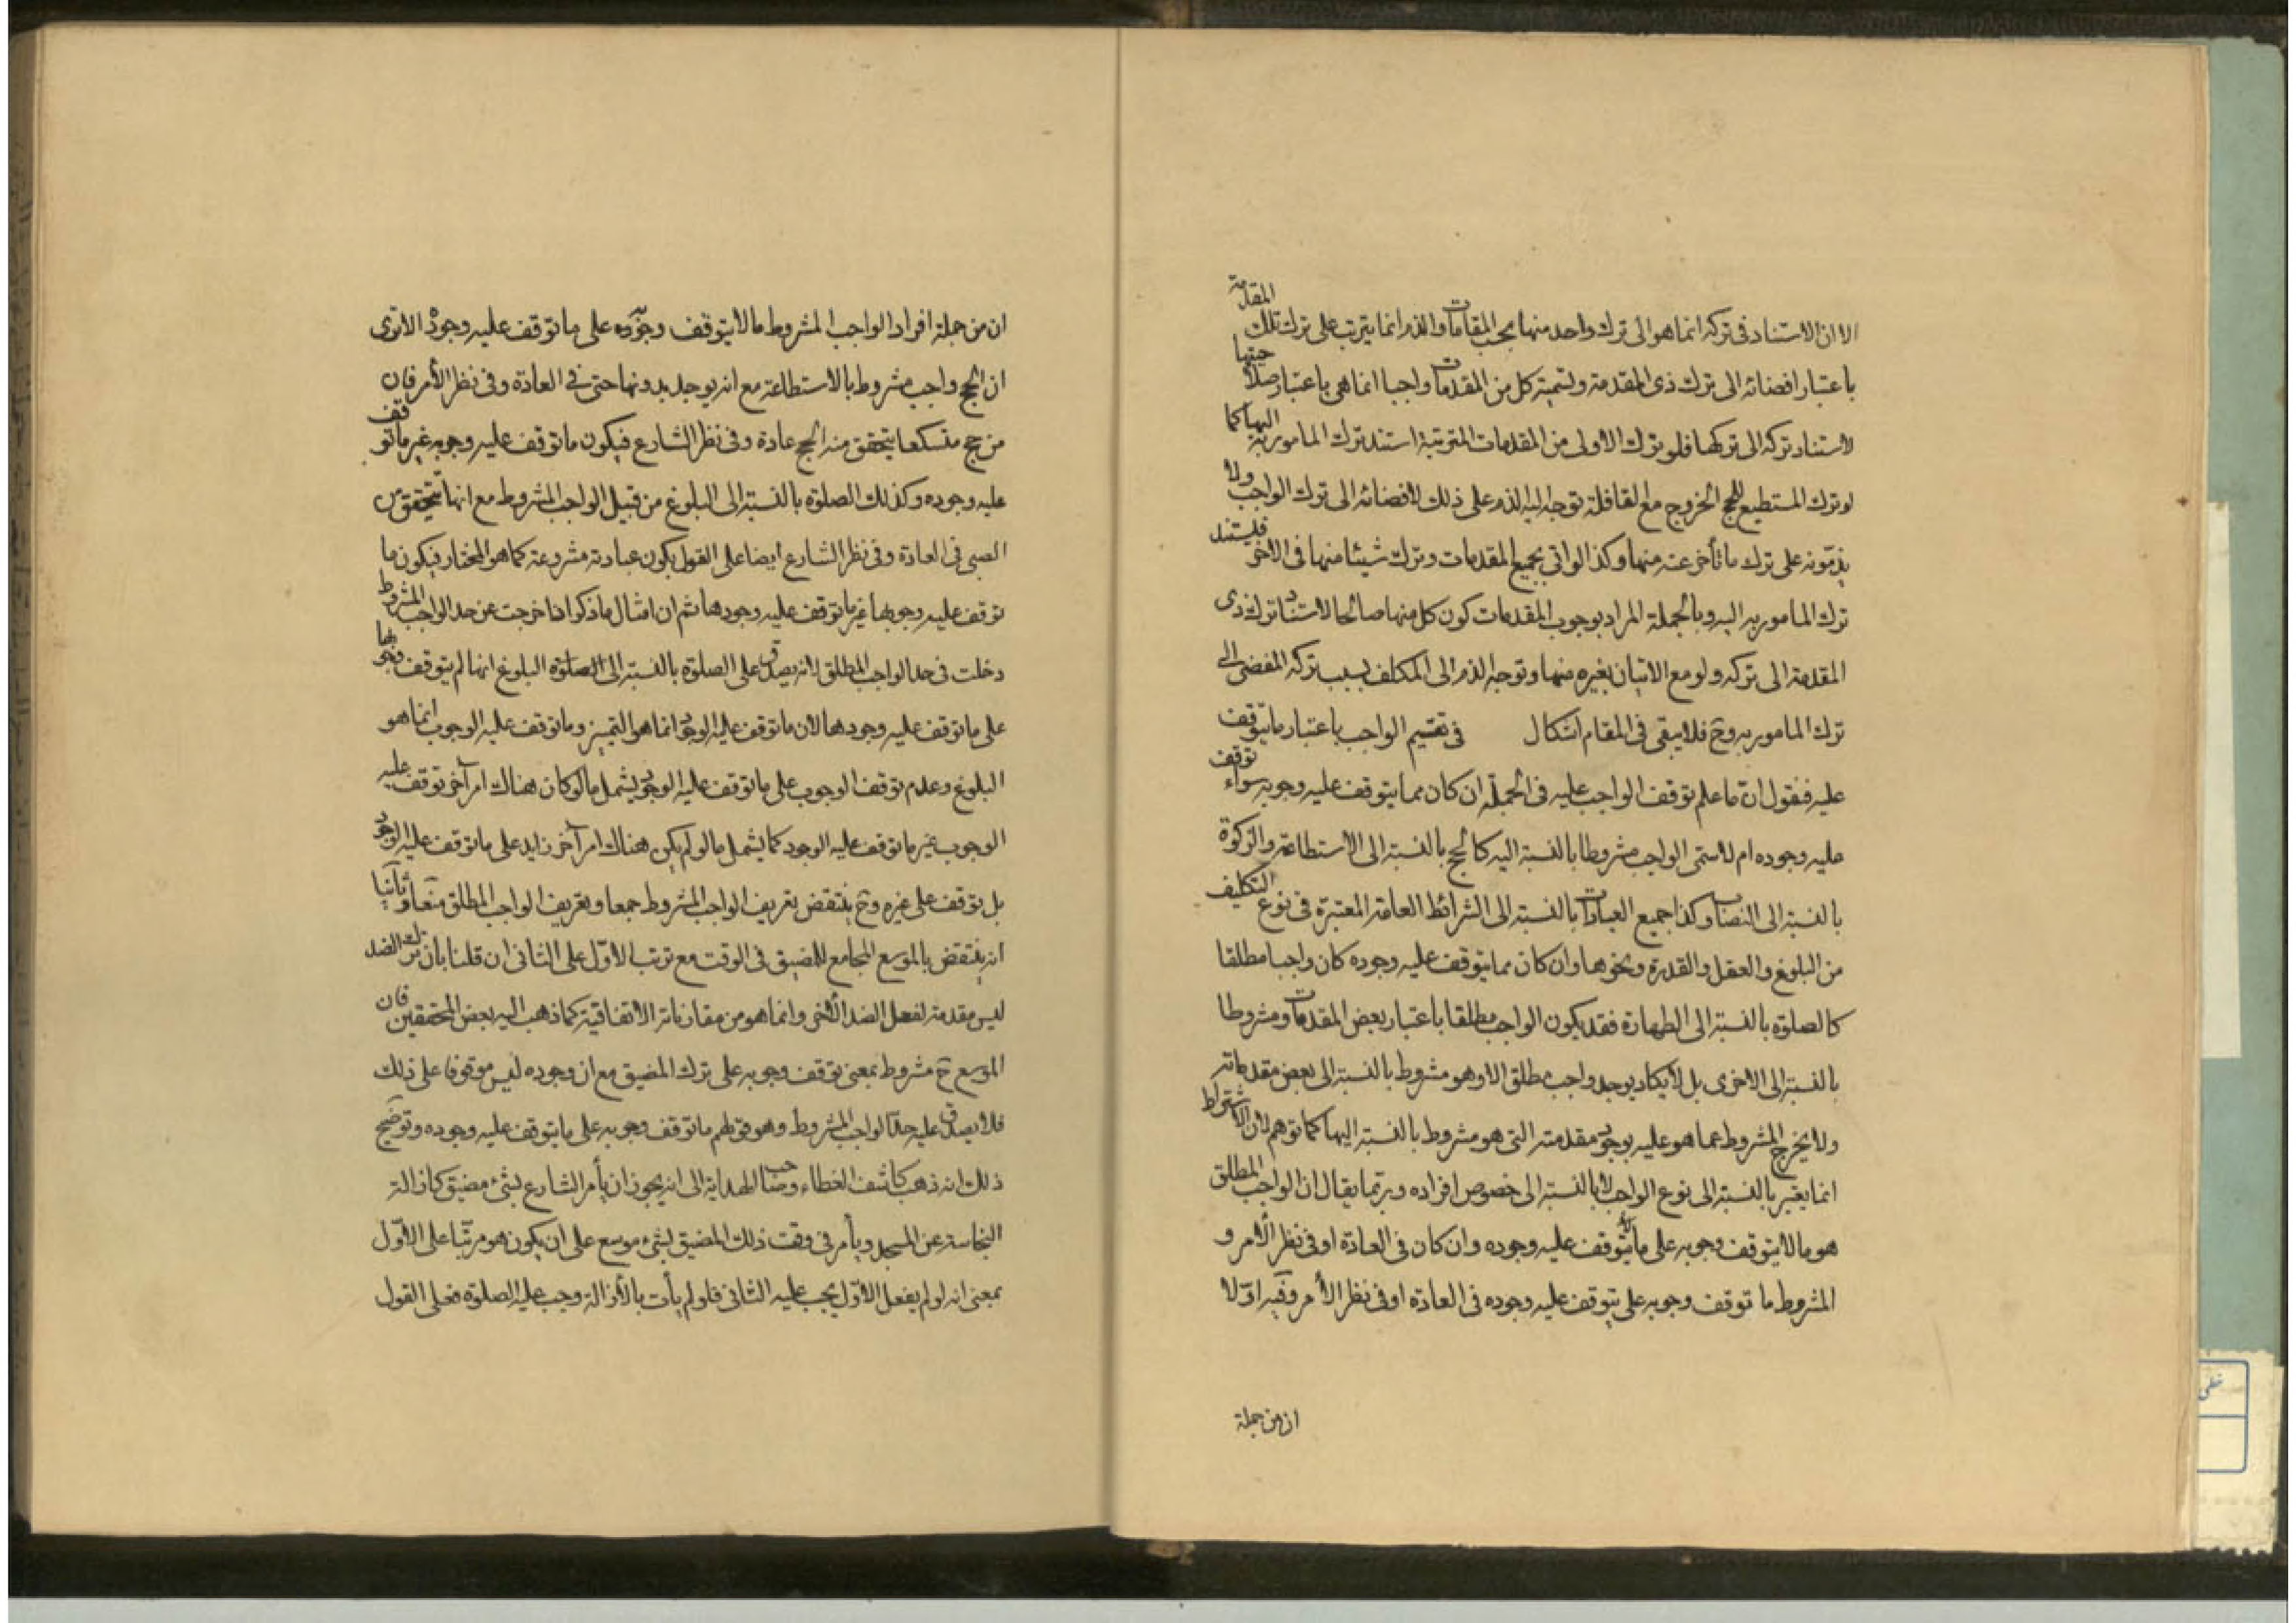 الا ان الاستناد فى تركه انما هو الى ترك واحد منها بحسب المقامات والذم انما يترتب على ترك تلك المقدمة
باعتبار افضائه الى ترك ذى المقدمة وتسمية كل من المقدمات واجبا انما هى باعتبار صلاحيتها
لاستناد تركه الى تركها فلو ترك الاولى من المقدمات المترتبة استند ترك المامور به اليها كما
لو ترك المستطيع للحج الخروج مع القافلة توجه اليه الذم على ذلك لافضائه الى ترك الواجب ولا
يذمّونه على ترك ما تأخر عنه منها وكذا لو اتى بجميع المقدمات وترك شيئا منها فى الاخر فليستند
ترك المامور به اليه وبالجملة المراد بوجوب المقدمات كون كل منها صالحا لاستناد ترك ذى
المقدمة الى تركه ولو مع الاتيان بغيره منها وتوجه الذم الى المكلف بسبب تركه المفضى الى
ترك المامور به وح فلا يبقى فى المقام اشكال فى تقسيم الواجب باعتبار ما يتوقف
عليه فنقول انّ ما علم توقف الواجب عليه فى الجملة ان كان مما يتوقف عليه وجوبه سواء توقف
عليه وجوده ام لا سمى الواجب مشروطا بالنسبة اليه كالحج بالنسبة الى الاستطاعة والزكوة
بالنسبة الى النصاب وكذا جميع العبادات بالنسبة الى الشرائط العامة المعتبرة فى نوع التكليف
من البلوغ والعقل والقدرة ونحوها وان كان مما يتوقف عليه وجوده كان واجبا مطلقا
كالصلوة بالنسبة الى الطهارة فقد يكون الواجب مطلقا باعتبار بعض المقدمات ومشروطا
بالنسبة الى الاخرى بل لا يكاد يوجد واجب مطلق الا وهو مشروط بالنسبة الى بعض مقدماته
ولا يخرج المشروط عما هو عليه بوجود مقدمته التى هو مشروط بالنسبة اليها كما توهم لان الاشتراط
انما يعتبر بالنسبة الى نوع الواجب لا بالنسبة الى خصوص افراده وربّما يقال ان الواجب المطلق
هو ما لا يتوقف وجوبه على ما يتوقف عليه وجوده وان كان فى العادة او فى نظر الأمر و
المشروط ما توقف وجوبه على يتوقف عليه وجوده فى العادة او فى نظر الأمر وفيه اوّلا
ان من جملة
ان من جملة افراد الواجب المشروط ما لا يتوقف وجوده على ما توقف عليه وجوبه الا ترى
ان الحج واجب مشروط بالاستطاعة مع انه يوجد بدونها حتى فى العادة وفى نظر الأمر فان
من حج متسكعا يتحقق منه الحج عادة وفى نظر الشارع فيكون ما توقف عليه وجوبه غير ما توقف
عليه وجوده وكذلك الصلوة بالنسبة الى البلوغ من قبيل الواجب المشروط مع انها تتحقق من
الصبى فى العادة وفى نظر الشارع ايضا على القول بكون عبادته مشروعة كما هو المختار فيكون ما
توقف عليه وجوبها غير ما توقف عليه وجودها ثم ان امثال ما ذكر اذا خرجت عن حد الواجب المشروط
دخلت فى حد الواجب المطلق لانه يصدق على الصلوة بالنسبة الى الصلوة البلوغ انها لم يتوقف وجوبها
على ما توقف عليه وجودها لان ما توقف عليه الوجود انما هو التميز وما توقف عليه الوجوب انما هو
البلوغ وعدم توقف الوجوب على ما توقف عليه الوجود يشمل ما لو كان هناك امر آخر توقف عليه
الوجوب غير ما توقف عليه الوجود كما يشمل ما لو لم يكن هناك امر آخر زايد على ما توقف عليه الوجود
بل توقف على غيره وح ينتقض تعريف الواجب المشروط جمعا وتعريف الواجب المطلق منعا وثانيا
انه ينتقض بالموسع المجامع للمضيق فى الوقت مع ترتب الاوّل على الثانى ان قلنا بان ترك الضد
ليس مقدمة لفعل الضد الأخر وانما هو من مقارناته الاتفاقية كما ذهب اليه بعض المحققين فان
الموسع ح مشروط بمعنى توقف وجوبه على ترك المضيق مع ان وجوده ليس موقوفا على ذلك
فلا يصدق عليه حدّ الواجب المشروط وهو قولهم ما توقف وجوبه على ما يتوقف عليه وجوده وتوضيح
ذلك انه ذهب كاشف الغطاء وصاحب الهداية الى انه يجوز ان يأمر الشارع بشئ مضيق كازالة
النجاسة عن المسجد ويأمر فى وقت ذلك المضيق بشئ موسع على ان يكون هو مرتبا على الاوّل
بمعنى انه لو لم يفعل الاوّل يجب عليه الثانى فلو لم يأت بالأزالة وجب عليه الصلوة فعلى القول